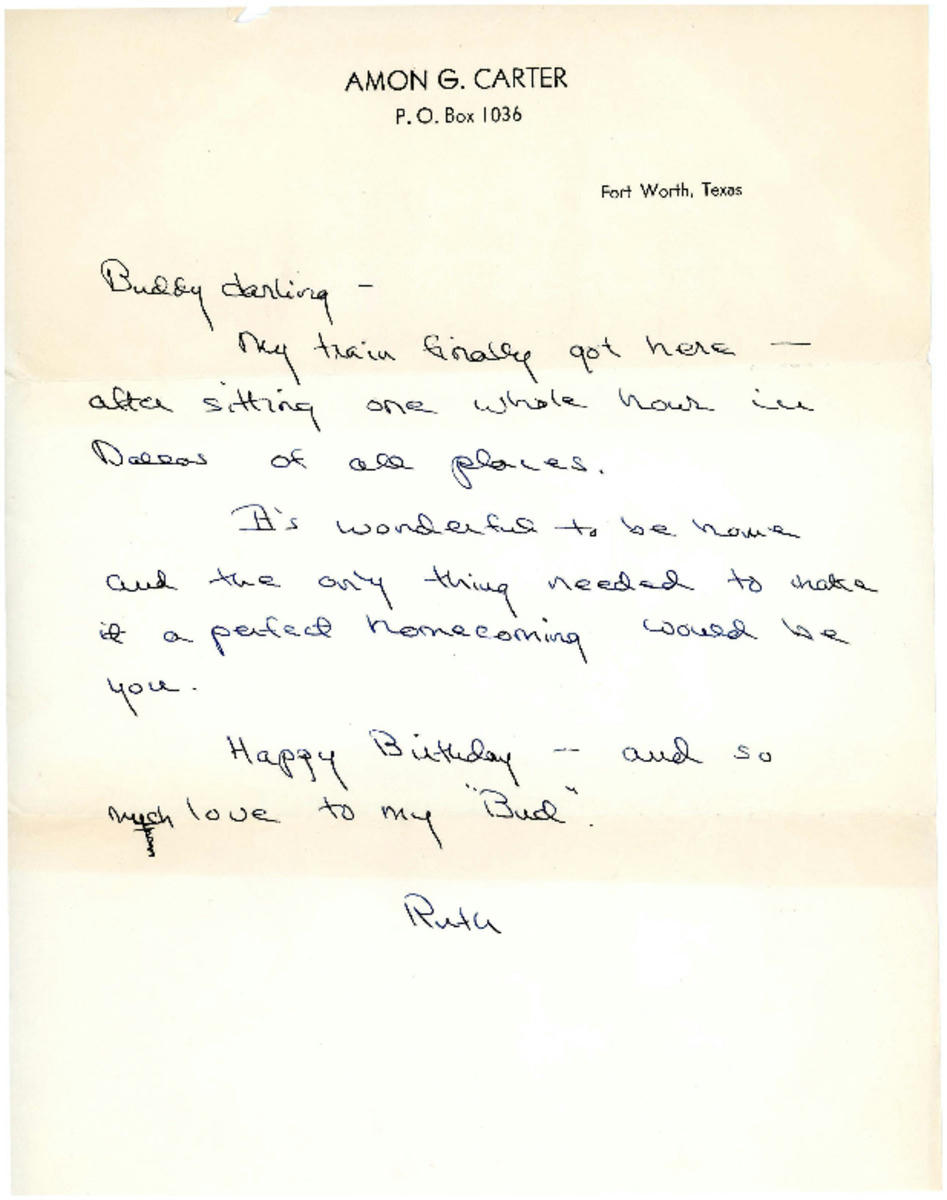 AMON G. CARTER
P. O. Box 1036
Fort Worth, Texas
Buddy darling –
My train finally got here —
after sitting one whole hour in
Dallas of all places.
It's wonderful to be home
and the only thing needed to make
it a perfect homecoming would be
you.
Happy Birthday — and so
much love to my "Bud".
Ruth